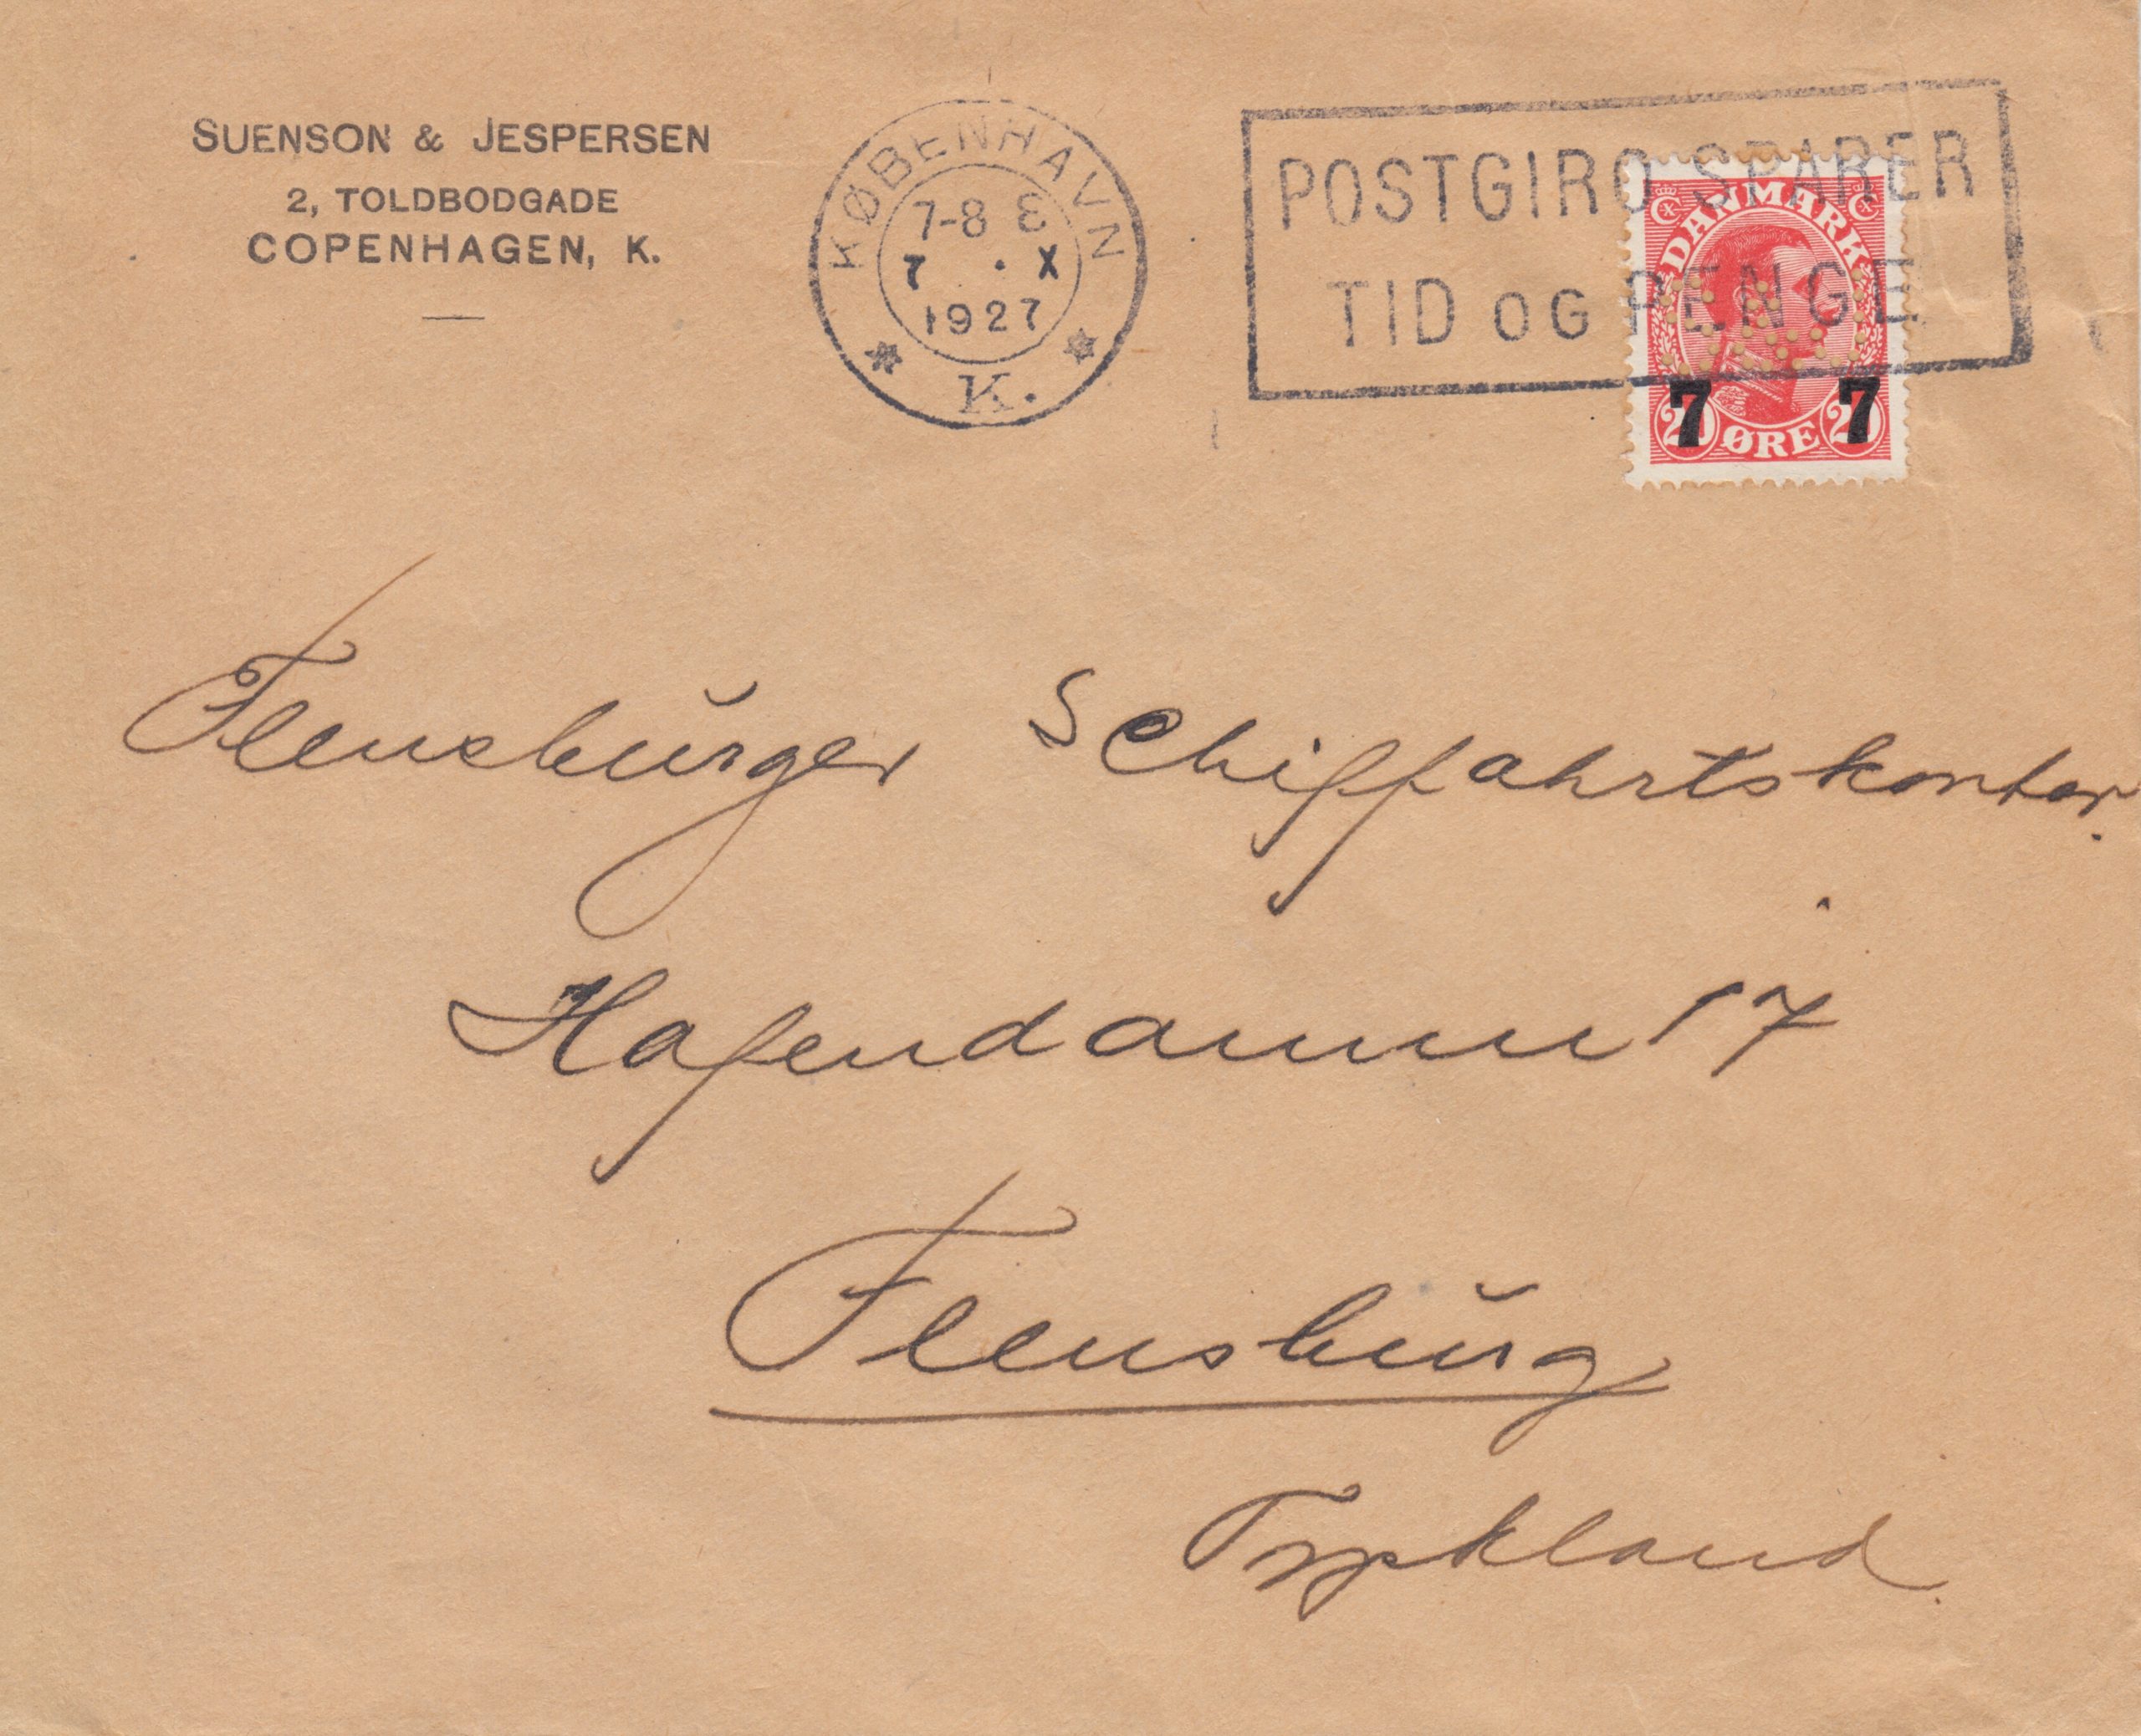 SUENSON & JESPERSEN
2, TOLDBODGADE
COPENHAGEN, K.
KØBENHAVN
7-8 E
7 . X
1927
K.
POSTGIRO SPARER
TID OG PENGE
DANMARK
7 7
20 ØRE 20
Flensburger Schiffahrtskontor.
Hafendamm 17
Flensburg
Tyskland.